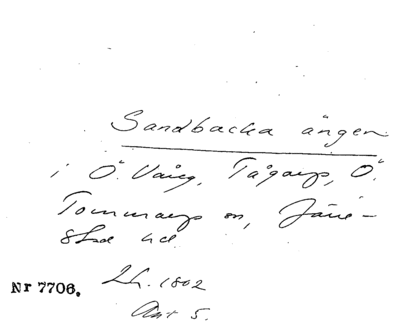 Sandbacka ängen
i Ö. Vång, Tågarp, Ö.
Tommarps sn, Järre-
stad hd.
Lh. 1802
Nr 7706.
Akt 5.